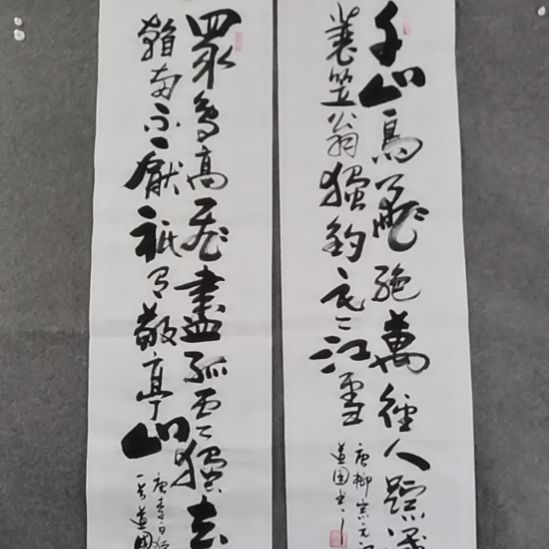 千山鳥飛絕萬徑人蹤滅
蓑笠翁獨釣寒江雪
唐柳宗元
道国书
眾鳥高飛盡孤雲獨去
兩不厭祇有敬亭山
唐李白
道國